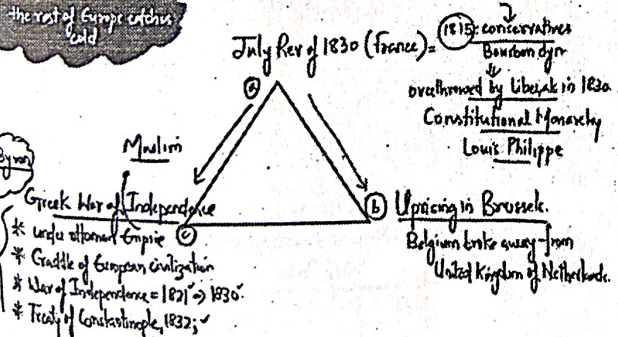 the rest of Europe catches
cold
July Rev of 1830 (France) = 1815: conservatives
Bourbon dyn
overthrown by liberals in 1830
Constitutional Monarchy
Louis Philippe
a
Muslim
Byron
Greek War of Independence
* under ottoman Empire
c
* Craddle of European civilization
* War of Independence = 1821 → 1830
* Treaty of Constantinople, 1832;
b Uprising in Brussels.
Belgium broke away from
United Kingdom of Netherlands.